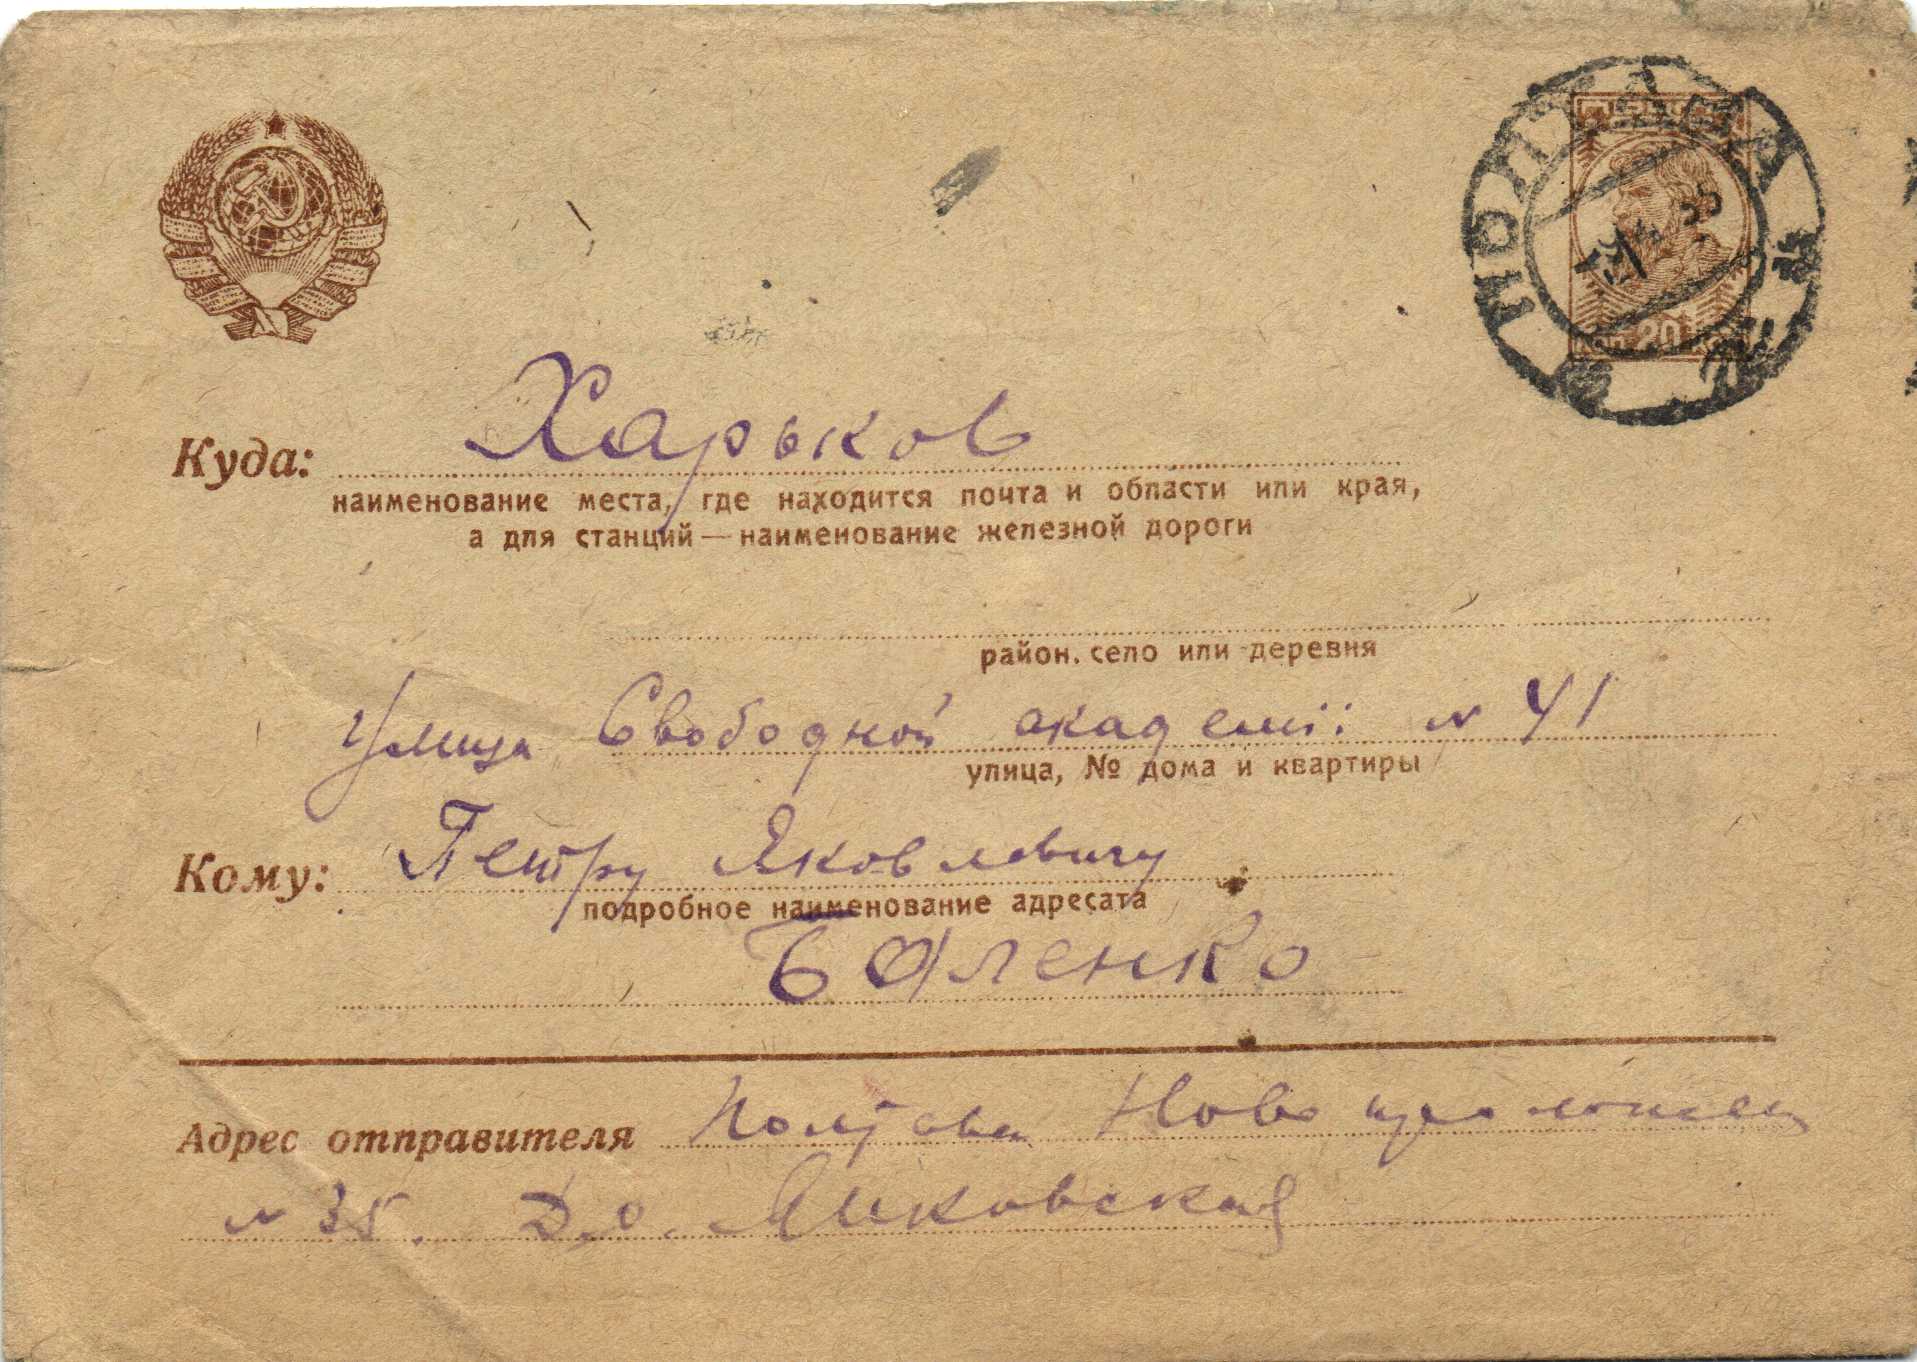 ПОЛТАВА
35
ПОЧТА
коп 20 коп
Куда: Харьков
наименование места, где находится почта и области или края,
а для станций — наименование железной дороги
район, село или деревня
Улица Свободной академіі № 41
улица, № дома и квартиры
Кому: Петру Яковлевичу
подробное наименование адресата
Баленко
Адрес отправителя Полтава Ново
№ 35. Д.О.